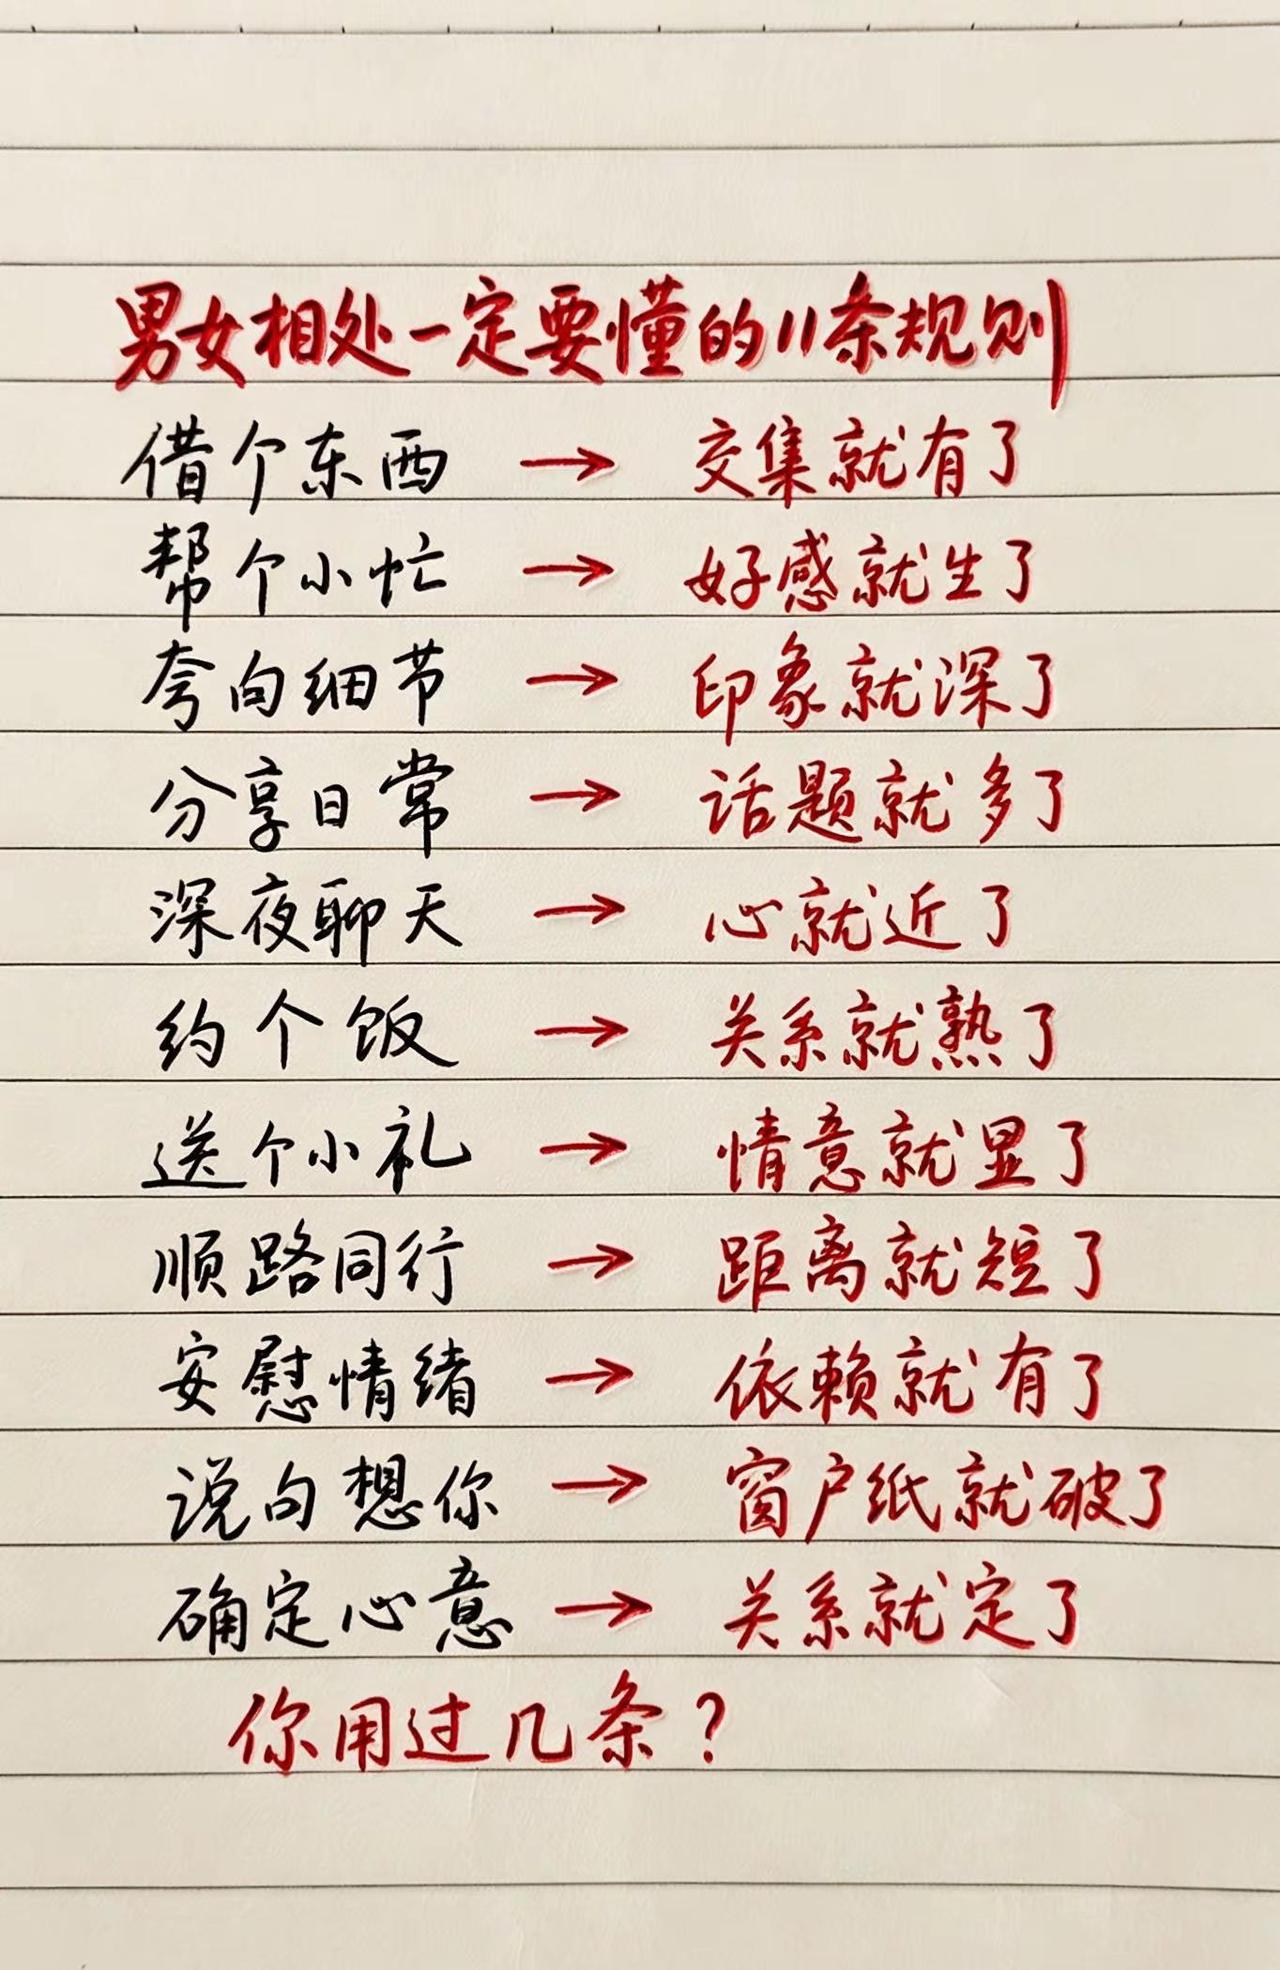 男女相处一定要懂的11条规则
借个东西 → 交集就有了
帮个小忙 → 好感就生了
夸句细节 → 印象就深了
分享日常 → 话题就多了
深夜聊天 → 心就近了
约个饭 → 关系就熟了
送个小礼 → 情意就显了
顺路同行 → 距离就短了
安慰情绪 → 依赖就有了
说句想你 → 窗户纸就破了
确定心意 → 关系就定了
你用过几条？